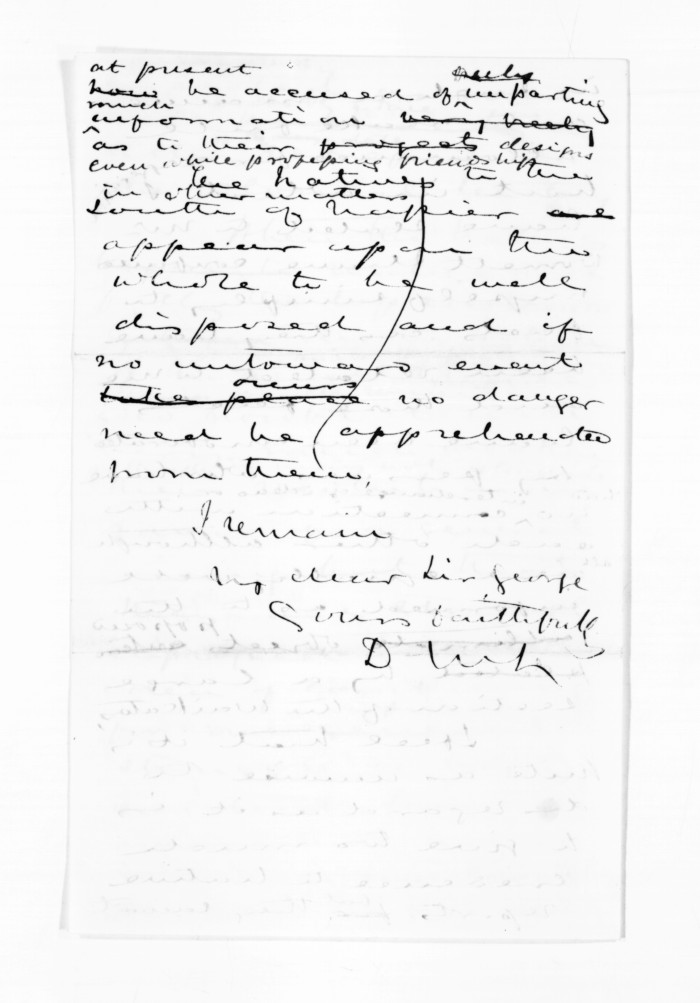 at present
now be accused of imparting
much
information very freely
as to their projects designs
even while professing friendship
the Natives to the
in other matters
South of Napier are
appear upon the
whole to be well
disposed and if
no untoward event
occurs
take place no danger
need be apprehended
from them,
I remain
My dear Sir George
Yours faithfully
D McL